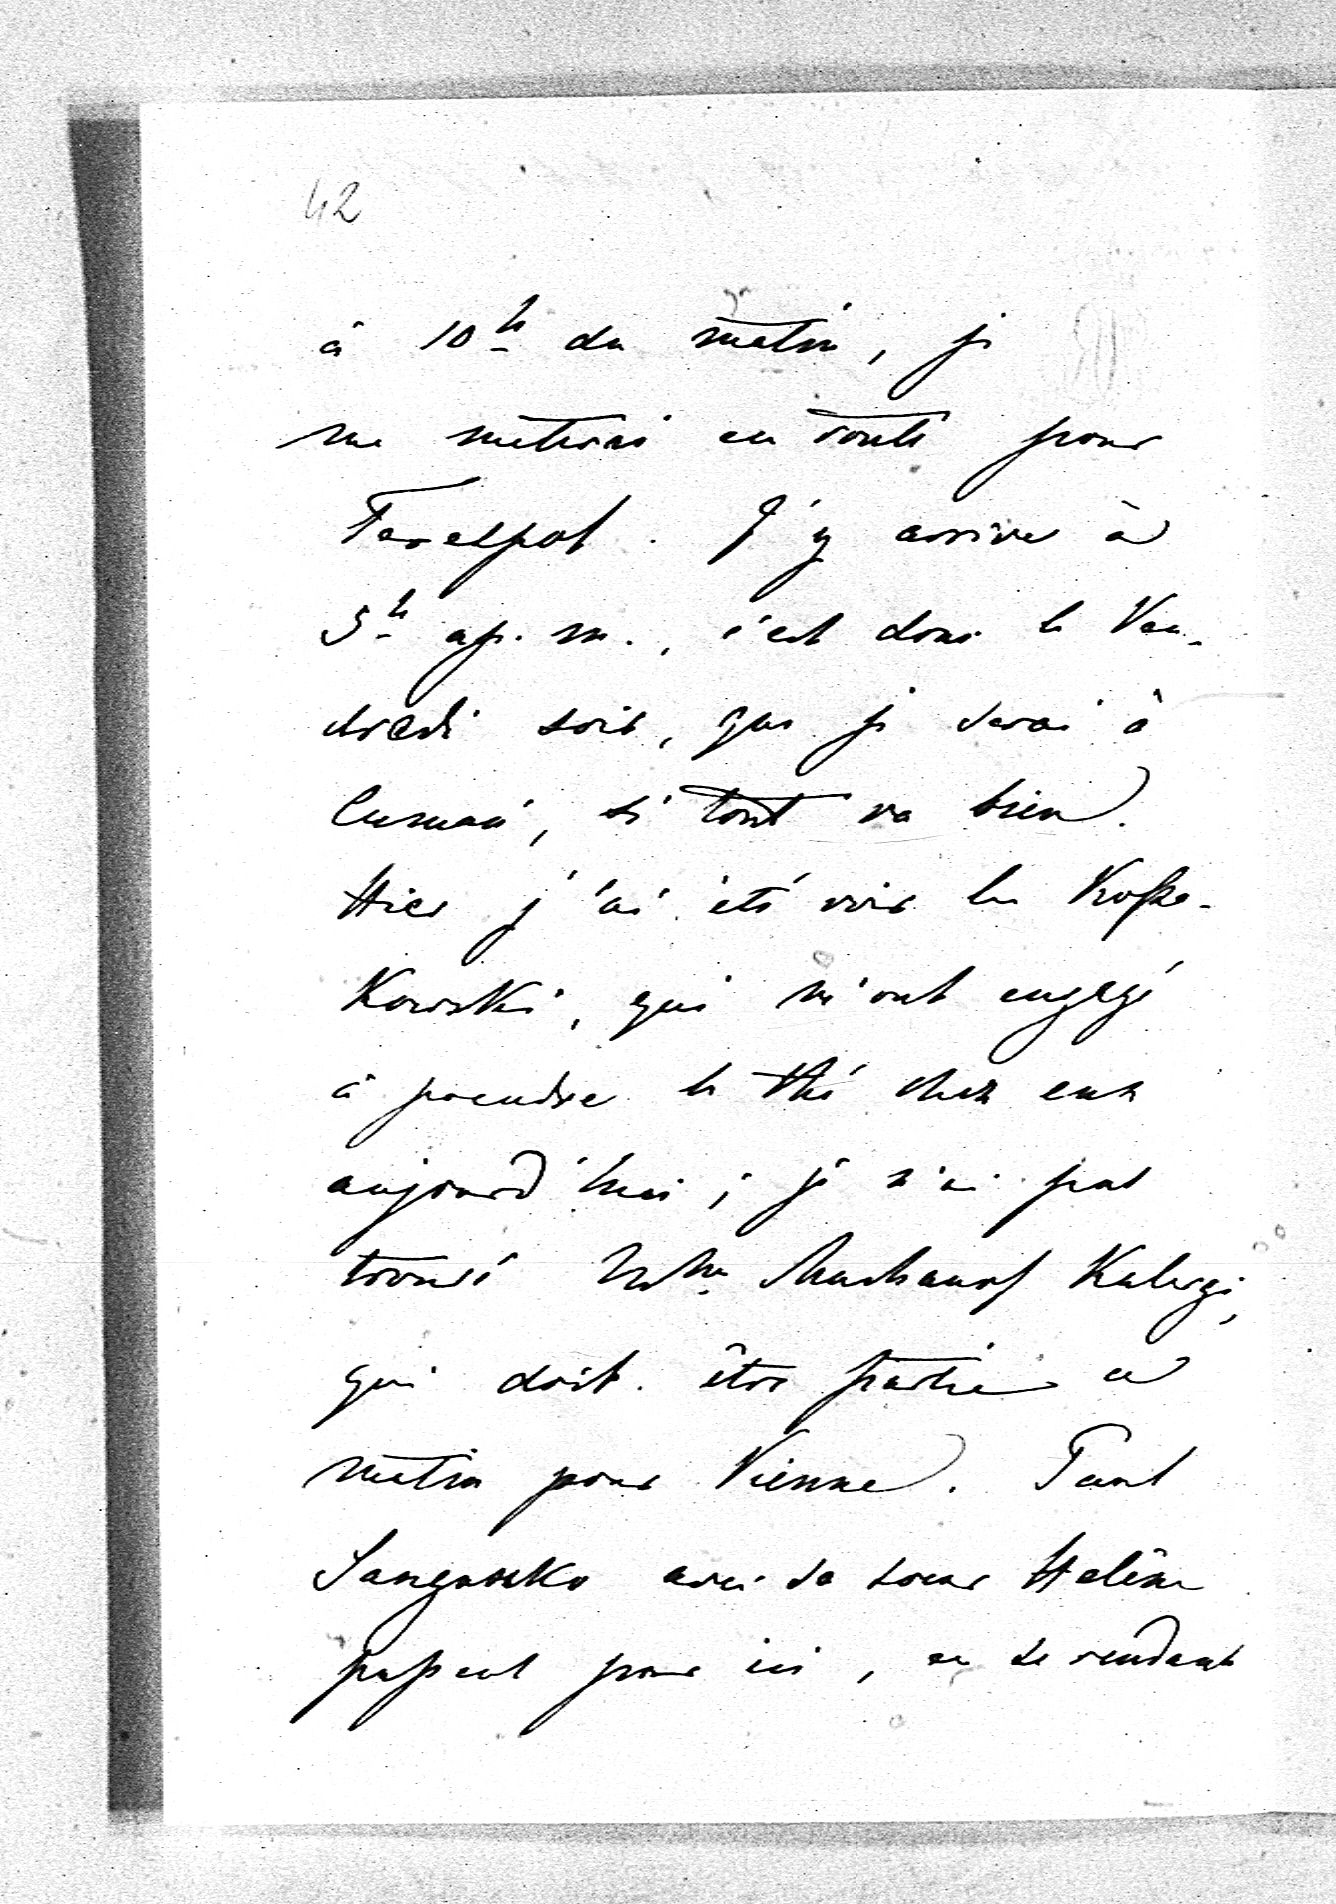 42
à 10h du matin, je
me metterai en route pour
Ferelpol. J'y arrive à
5h ap. m., c'est donc le Ven-
dredi soir, que je serai à
Cumań, si tout va bien.
Hier j'ai été voir les Kossa-
Kowski, qui m'ont engagé
à prendre le thé chez eux
aujourd'hui; je n'ai pas
trouvé Mme Muchanof Kalergi,
qui doit être partie ce
matin pour Vienne. Paul
Sanguszko avec sa soeur Helène
passent par ici, en se rendant